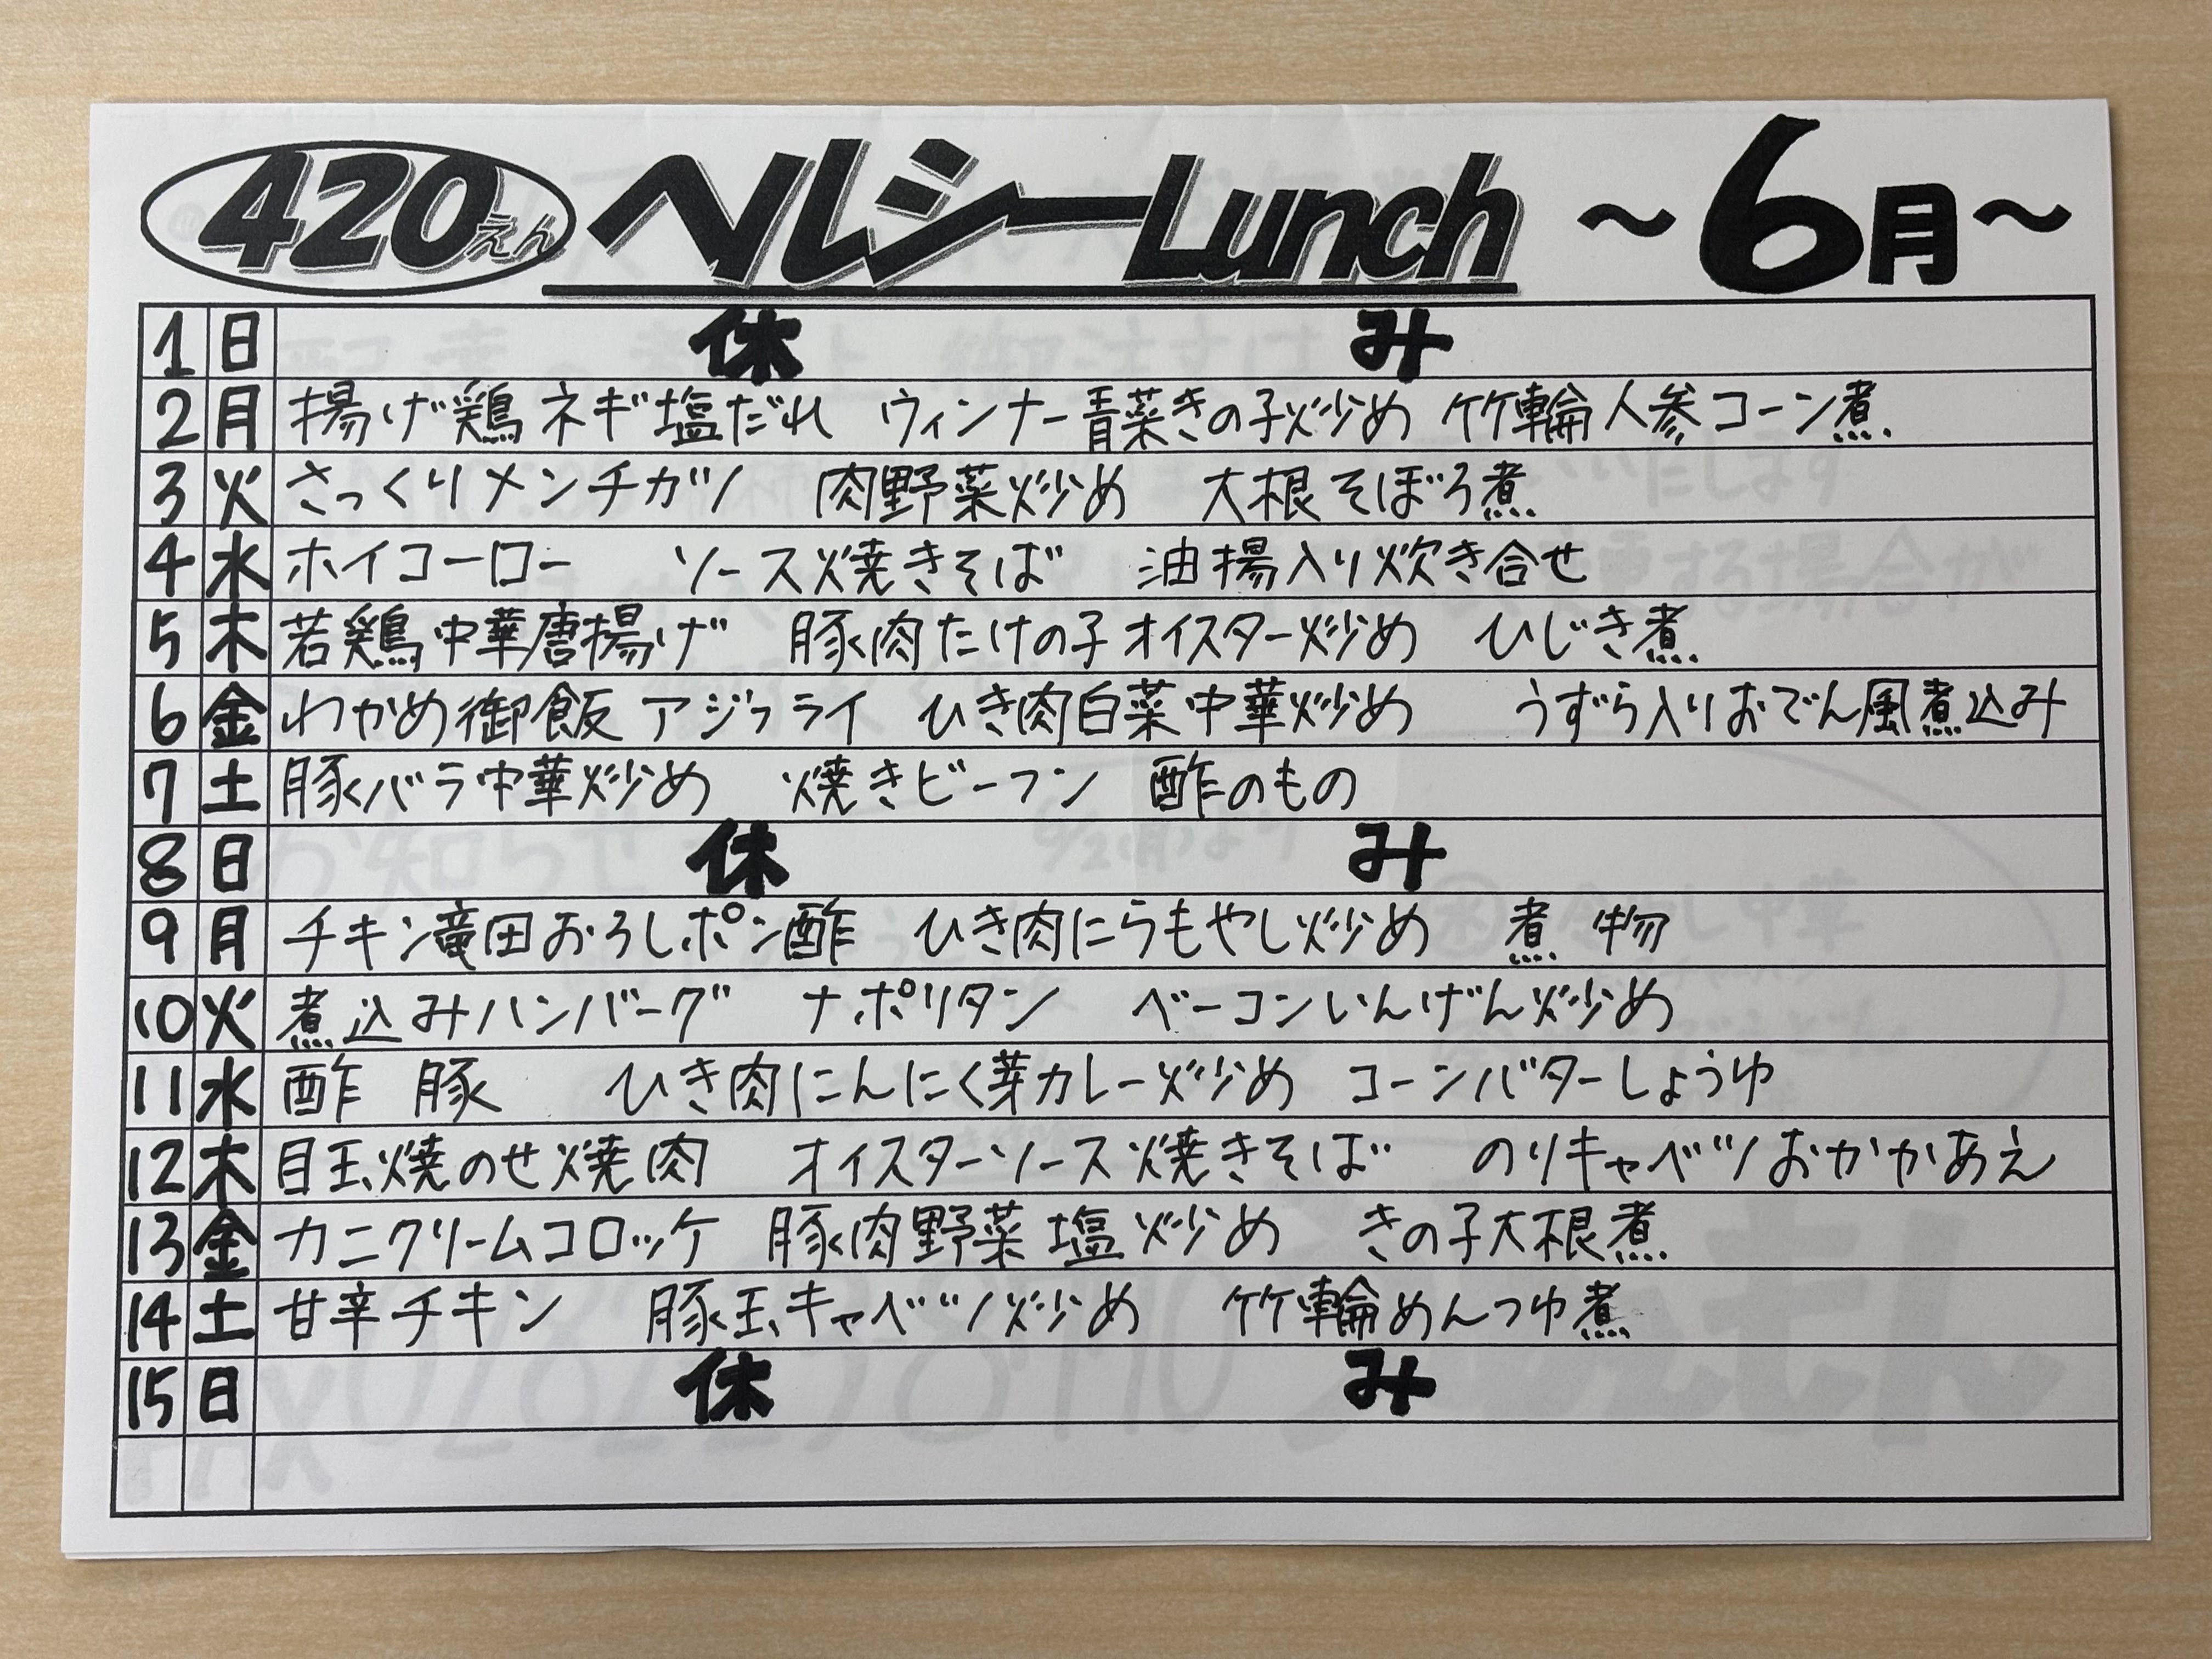 420えん ヘルシーLunch ～6月～
1 日 休み
2 月 揚げ鶏ネギ塩だれ ウィンナー青菜きの子炒め 竹輪人参コーン煮
3 火 さっくりメンチカツ 肉野菜炒め 大根そぼろ煮
4 水 ホイコーロー ソース焼きそば 油揚入り炊き合せ
5 木 若鶏中華唐揚げ 豚肉たけの子オイスター炒め ひじき煮
6 金 わかめ御飯 アジフライ ひき肉白菜中華炒め うずら入りおでん風煮込み
7 土 豚バラ中華炒め 焼きビーフン 酢のもの
8 日 休み
9 月 チキン竜田おろしポン酢 ひき肉にらもやし炒め 煮物
10 火 煮込みハンバーグ ナポリタン ベーコンいんげん炒め
11 水 酢豚 ひき肉にんにく芽カレー炒め コーンバターしょうゆ
12 木 目玉焼のせ焼肉 オイスターソース焼きそば のりキャベツおかかあえ
13 金 カニクリームコロッケ 豚肉野菜塩炒め きの子大根煮
14 土 甘辛チキン 豚玉キャベツ炒め 竹輪めんつゆ煮
15 日 休み